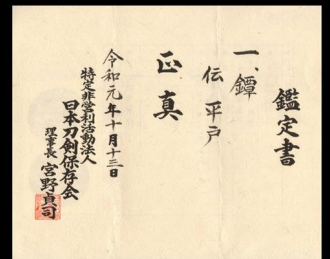 鑑定書
一、鐔
伝 平戸
正真
令和元年十月十三日
特定非営利活動法人
日本刀剣保存会
理事長 宮野貞司